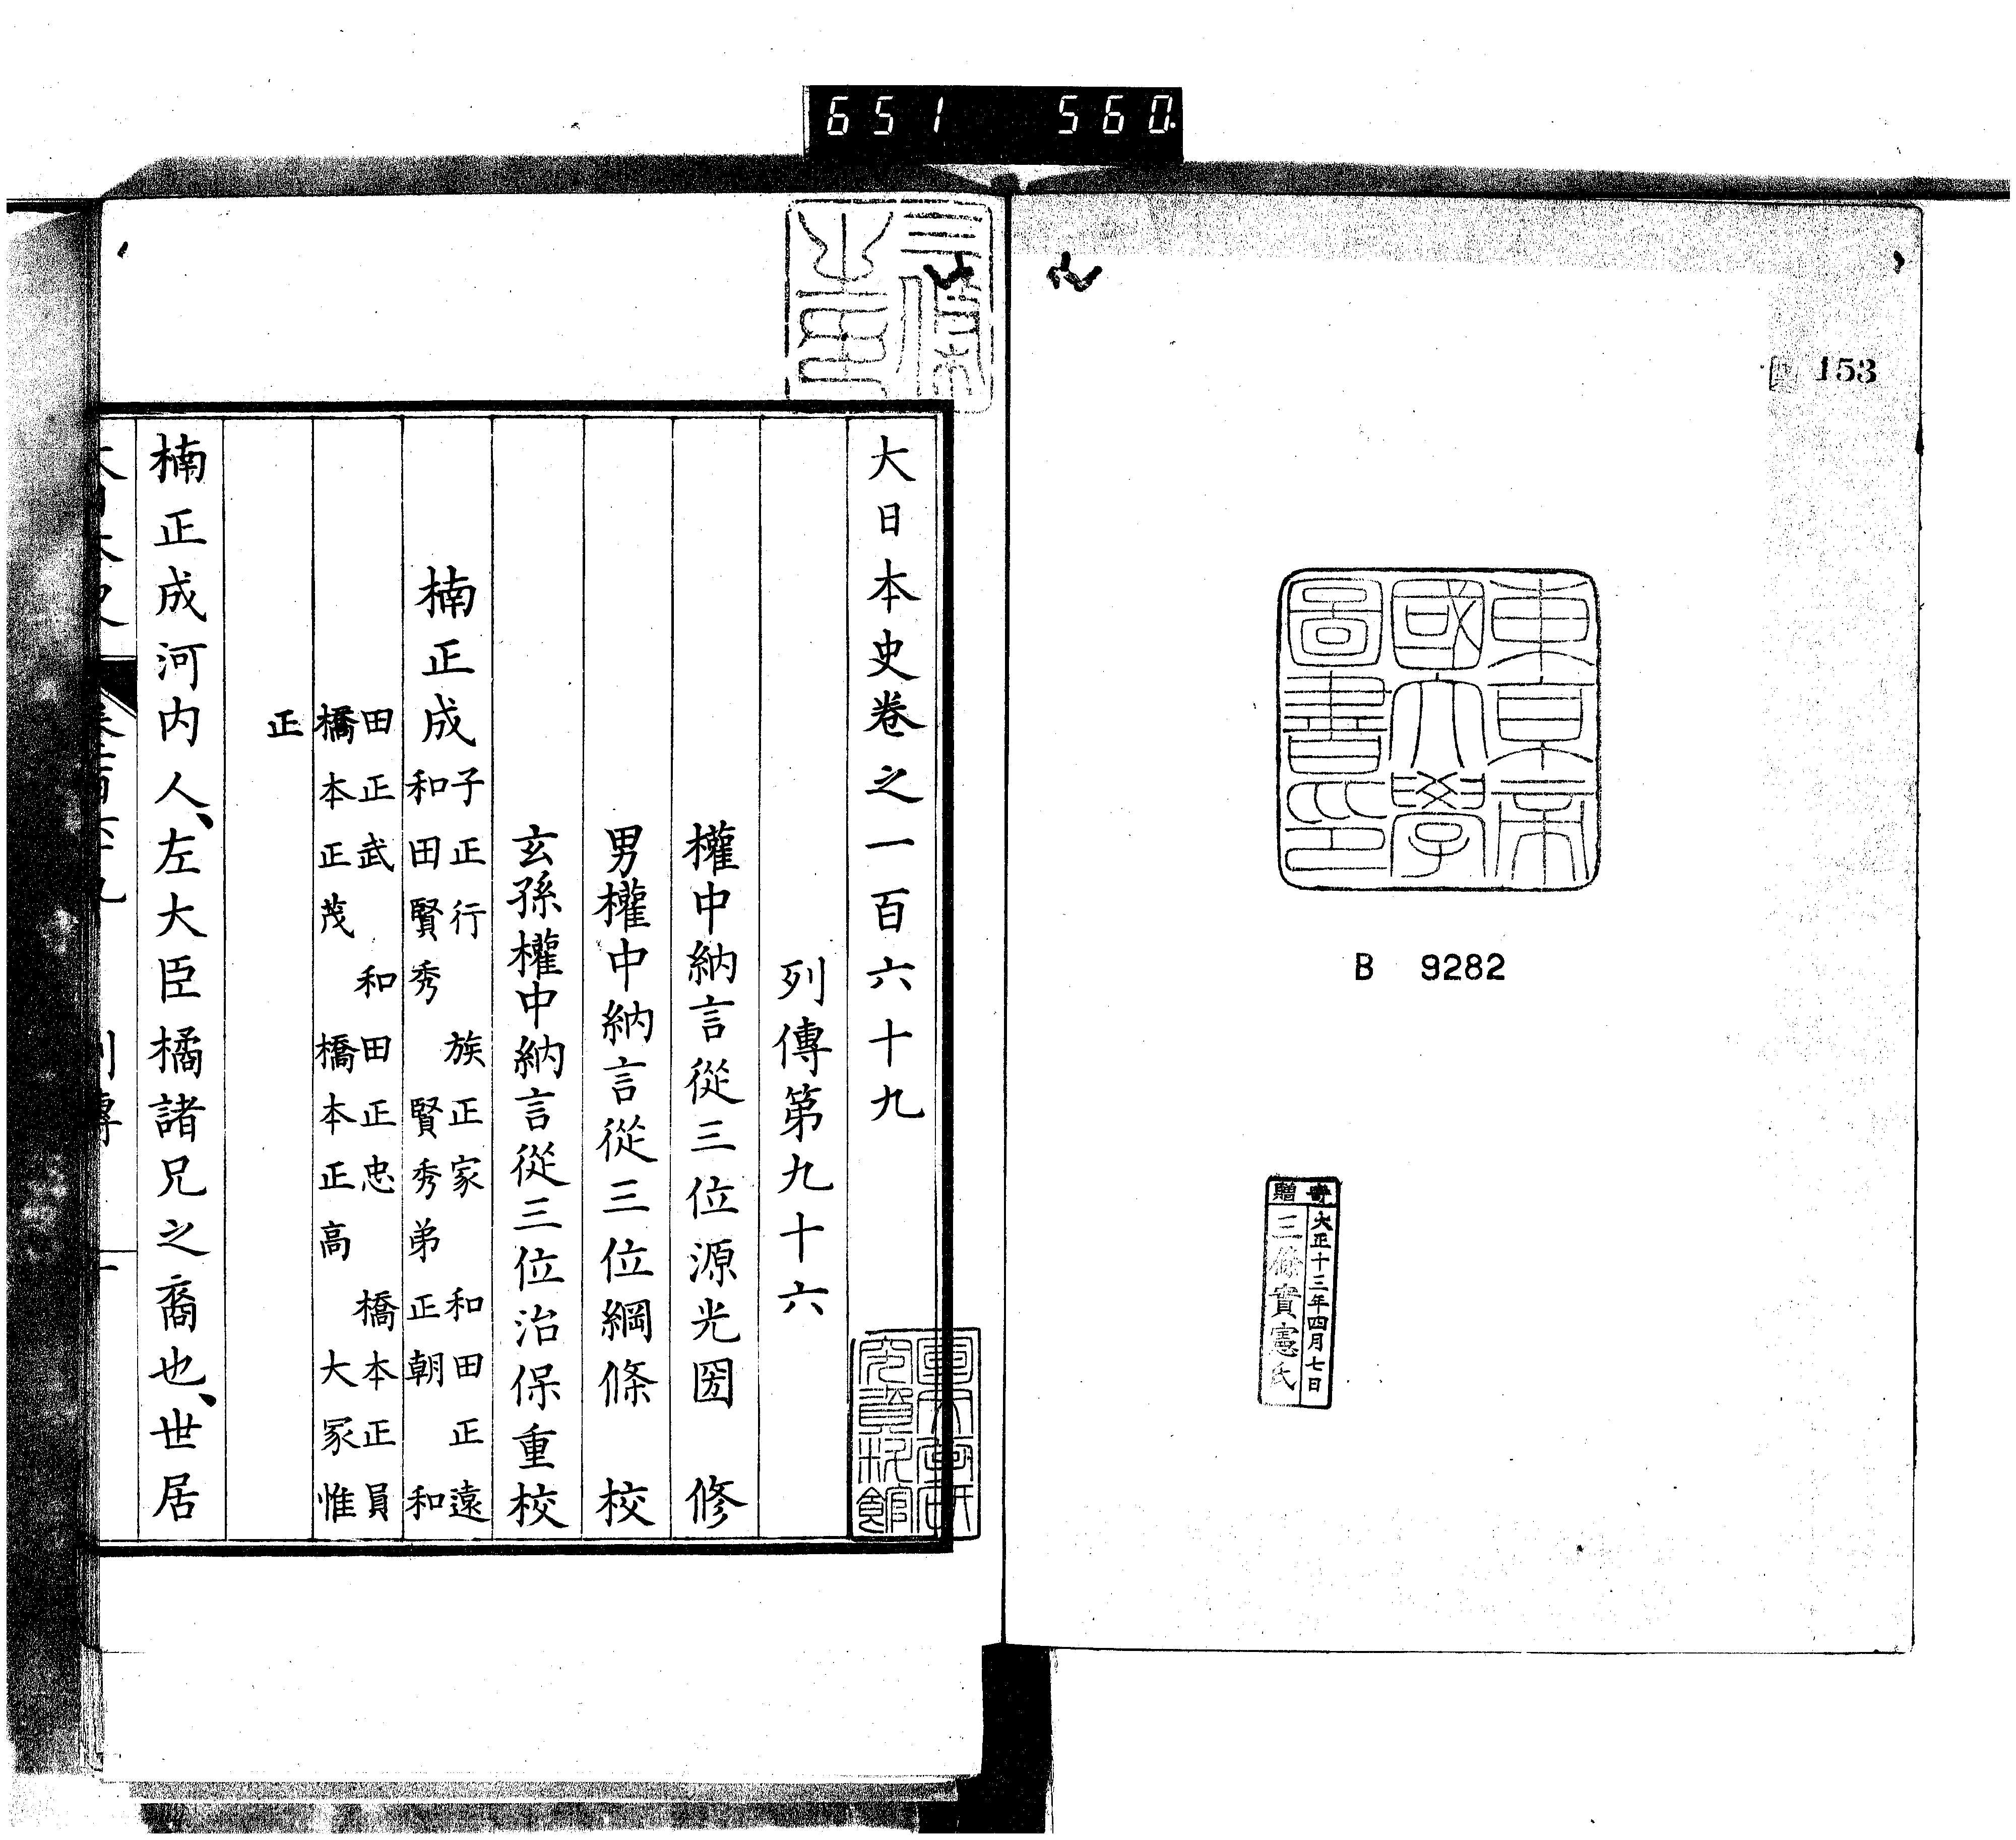 651 560
153
東京帝
國大學
圖書印
B 9282
寄贈
大正十三年四月七日
三條實憲氏
三條
大日本史卷之一百六十九
列傳第九十六
權中納言從三位源光圀 修
男權中納言從三位綱條 校
玄孫權中納言從三位治保重校
楠正成
子正行 族正家 和田正遠
和田賢秀 賢秀弟正朝 和
田正武 和田正忠 橋本正員
橋本正茂 橋本正高 大冢惟
正
楠正成河内人、左大臣橘諸兄之裔也、世居